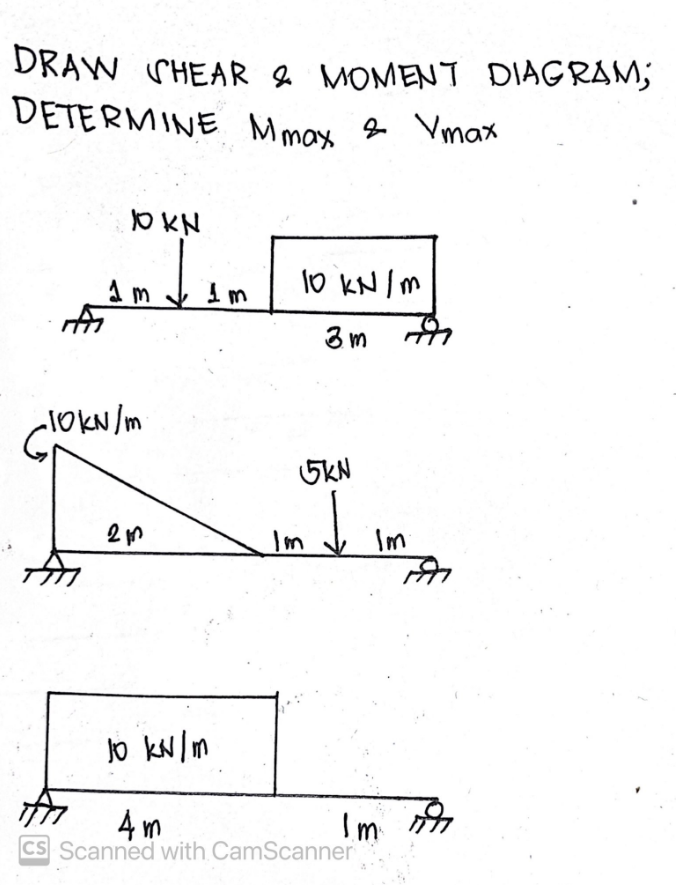 DRAW SHEAR & MOMENT DIAGRAM;
DETERMINE Mmax & Vmax
10 KN
1 m 1 m 10 KN/m
3 m
10KN/m
5KN
2 m 1m 1m
10 KN/m
4 m 1m
CS Scanned with CamScanner